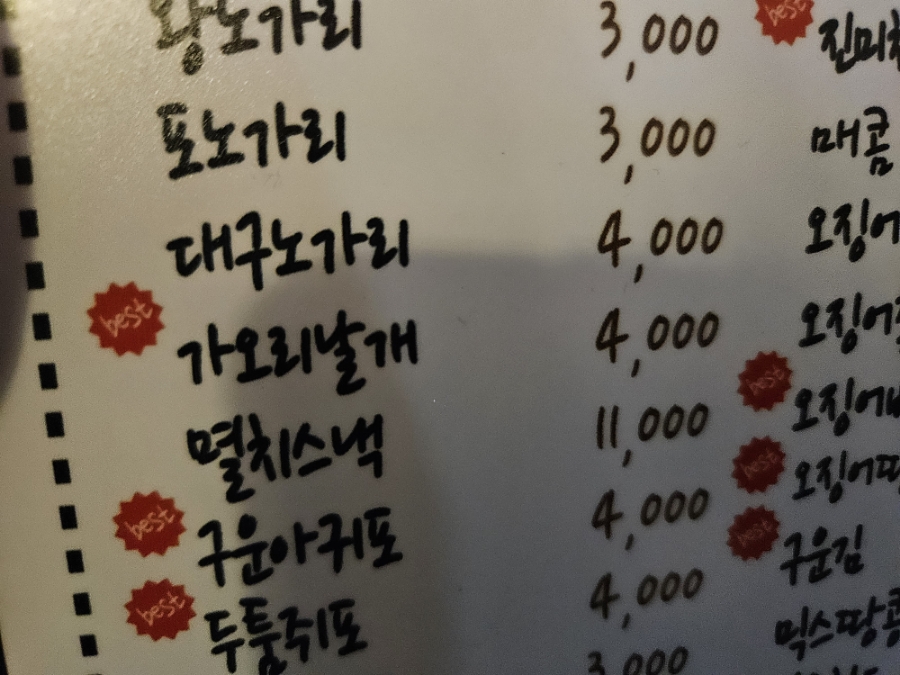 왕노가리 3,000
포노가리 3,000
대구노가리 4,000
best 가오리날개 4,000
멸치스낵 11,000
best 구운아귀포 4,000
best 두툼쥐포 4,000
3,000
best 진미
매콤
오징어
오징어
best 오징어
best 오징어
best 구운김
믹스땅콩